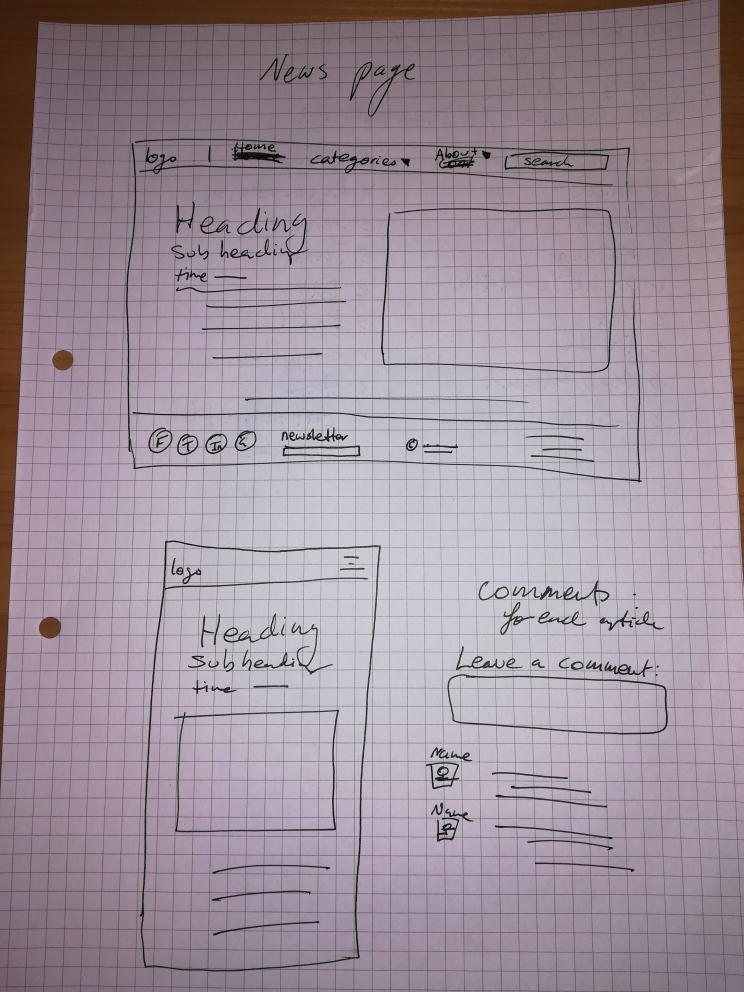 News page
logo | Home categories ▾ About ▾ search
Heading
Sub heading
time
F T In
newsletter
©
logo
Heading
Subheading
time
Comments :
for each article
Leave a comment:
Name
Name